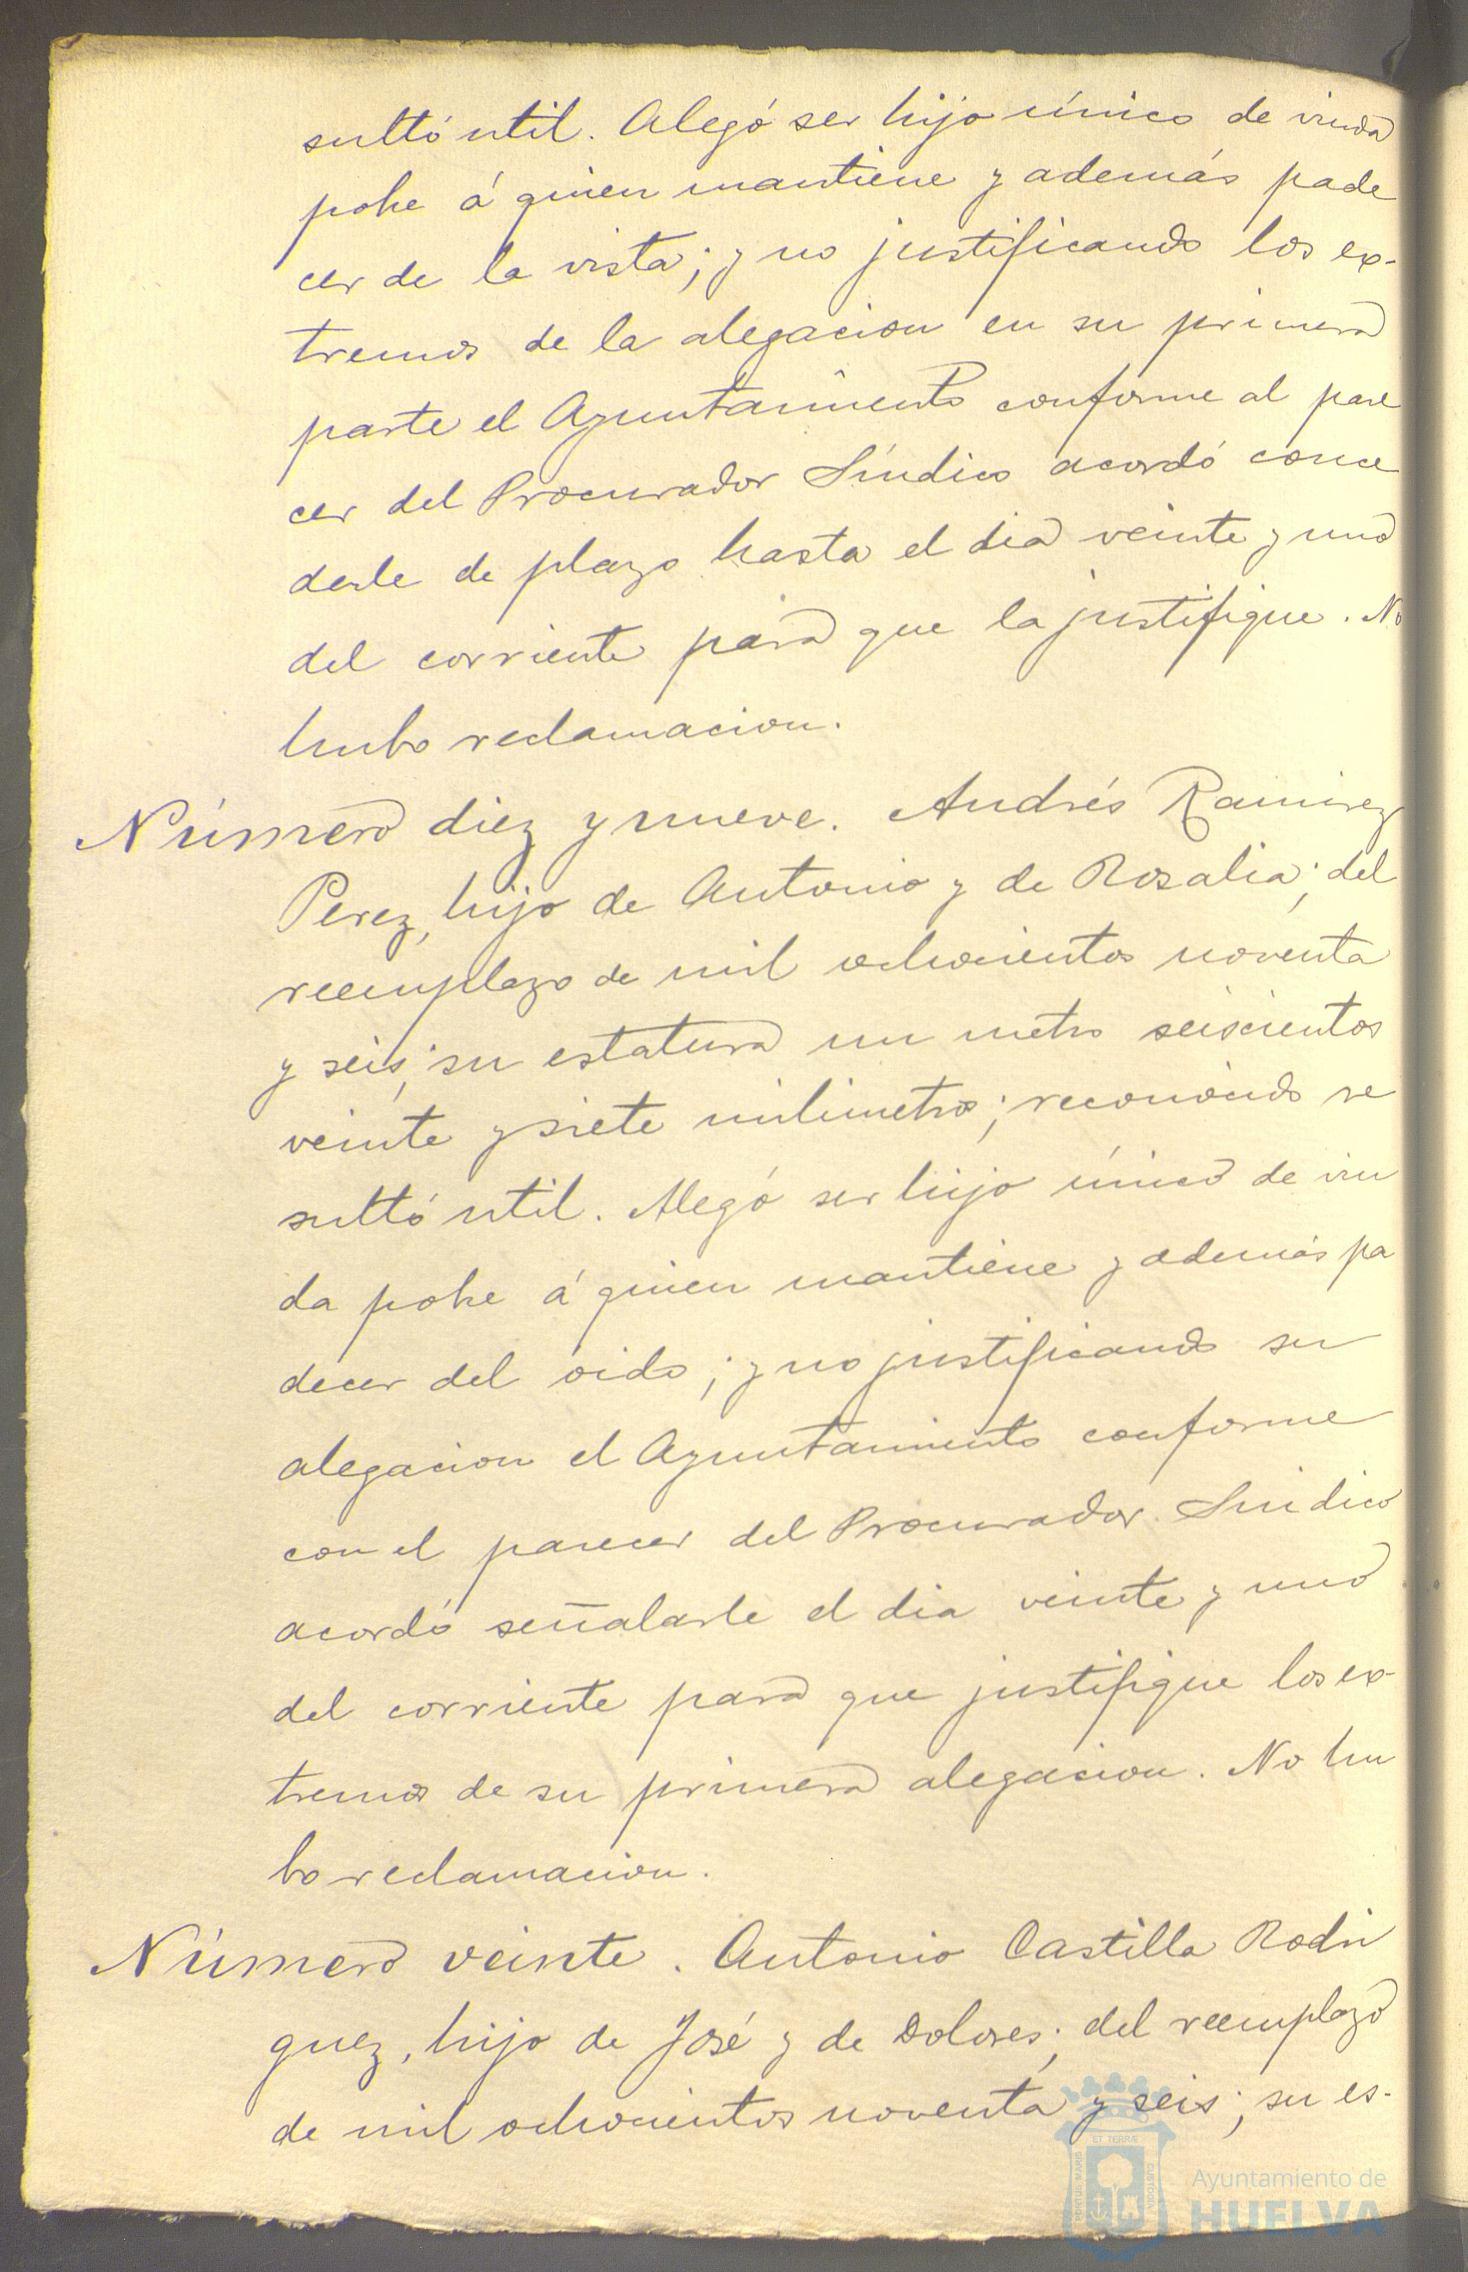 sultó util. Alegó ser hijo único de viuda
pobre á quien mantiene y además pade
cer de la vista; y no justificando los ex-
tremos de la alegacion en su primera
parte el Ayuntamiento conforme al pare
cer del Procurador Síndico acordó conce
derle de plazo hasta el dia veinte y uno
del corriente para que la justifique. No
hubo reclamacion.
Número diez y nueve. Andrés Ramirez
Perez, hijo de Antonio y de Rosalia; del
reemplazo de mil ochocientos noventa
y seis; su estatura un metro seiscientos
veinte y siete milimetros; reconocido re
sultó util. Alegó ser hijo único de viu
da pobre á quien mantiene y además pa
decer del oido; y no justificando su
alegacion el Ayuntamiento conforme
con el parecer del Procurador Sindico
acordó señalarle el dia veinte y uno
del corriente para que justifique los ex-
tremos de su primera alegacion. No hu
bo reclamacion.
Número veinte. Antonio Castilla Rodri
guez, hijo de José y de Dolores; del reemplazo
de mil ochocientos noventa y seis; su es-
Ayuntamiento de
HUELVA